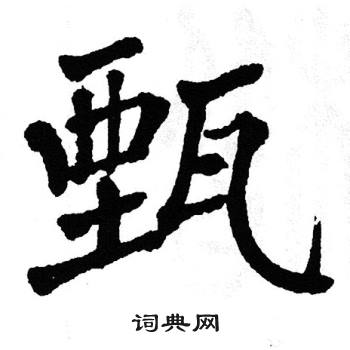 甄
词典网